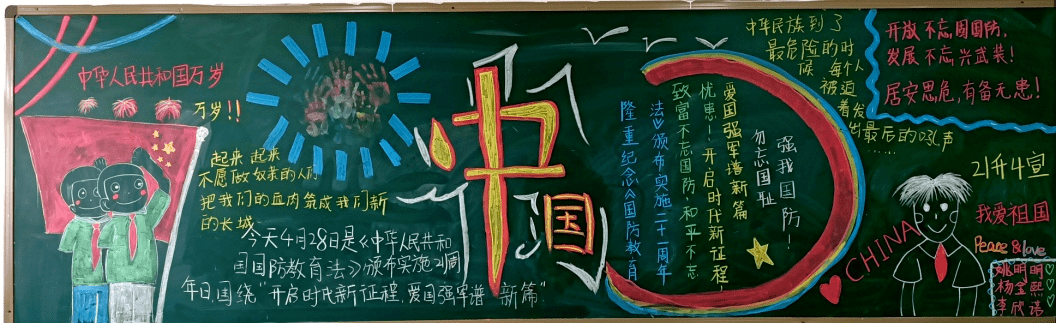 中华人民共和国万岁
万岁!!
起来 起来
不愿做奴隶的人们
把我们的血肉筑成我们新
的长城
今天4月28日是《中华人民共和
国国防教育法》颁布实施21周
年日,围绕"开启时代新征程,爱国强军谱 新篇"
中
国
隆重纪念《国防教育
法》颁布实施二十一周年
致富不忘国防,和平不忘
忧患!开启时代新征程
爱国强军谱新篇
勿忘国耻
强我国防!
中华民族到了
最危险的时
候 每个人
被迫
着发
出最后的吼声
……
开放不忘固国防,
发展不忘兴武装!
居安思危,有备无患!
CHINA
21升4宣
我爱祖国
Peace & love
姚明明
杨金熙
李欣